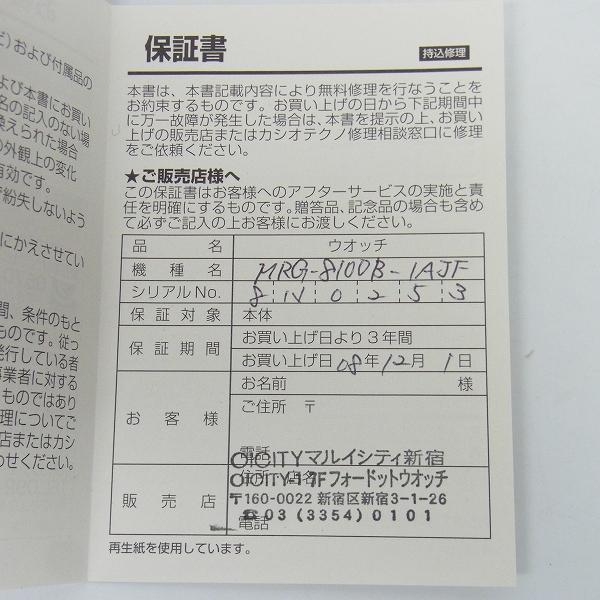 ど)および付属品の
よび本書にお買い
名の記入のない場
換えられた場合
の外観上の変化
有効です。
で紛失しないよう
にかえさせてい
間、条件のもと
ものです。従っ
発行している者
事業者に対する
ものではあり
理についてご
店またはカシ
わせください。
保証書
持込修理
本書は、本書記載内容により無料修理を行なうことを
お約束するものです。お買い上げの日から下記期間中
に万一故障が発生した場合は、本書を提示の上、お買い
上げの販売店またはカシオテクノ修理相談窓口に修理
をご依頼ください。
★ご販売店様へ
この保証書はお客様へのアフターサービスの実施と責
任を明確にするものです。贈答品、記念品の場合も含め
て必ずご記入の上お客様にお渡しください。
品名 ウオッチ
機種名 MRG-8100B-1AJF
シリアルNo. 8 1N 0 2 5 3
保証対象 本体
保証期間 お買い上げ日より3年間
お買い上げ日 08年12月1日
お客様 お名前 様
ご住所 〒
電話
販売店 住所・店名
OICITYマルイシティ新宿
OICITY-1 7Fフォードットウオッチ
〒160-0022 新宿区新宿3-1-26
☎03(3354)0101
電話
再生紙を使用しています。